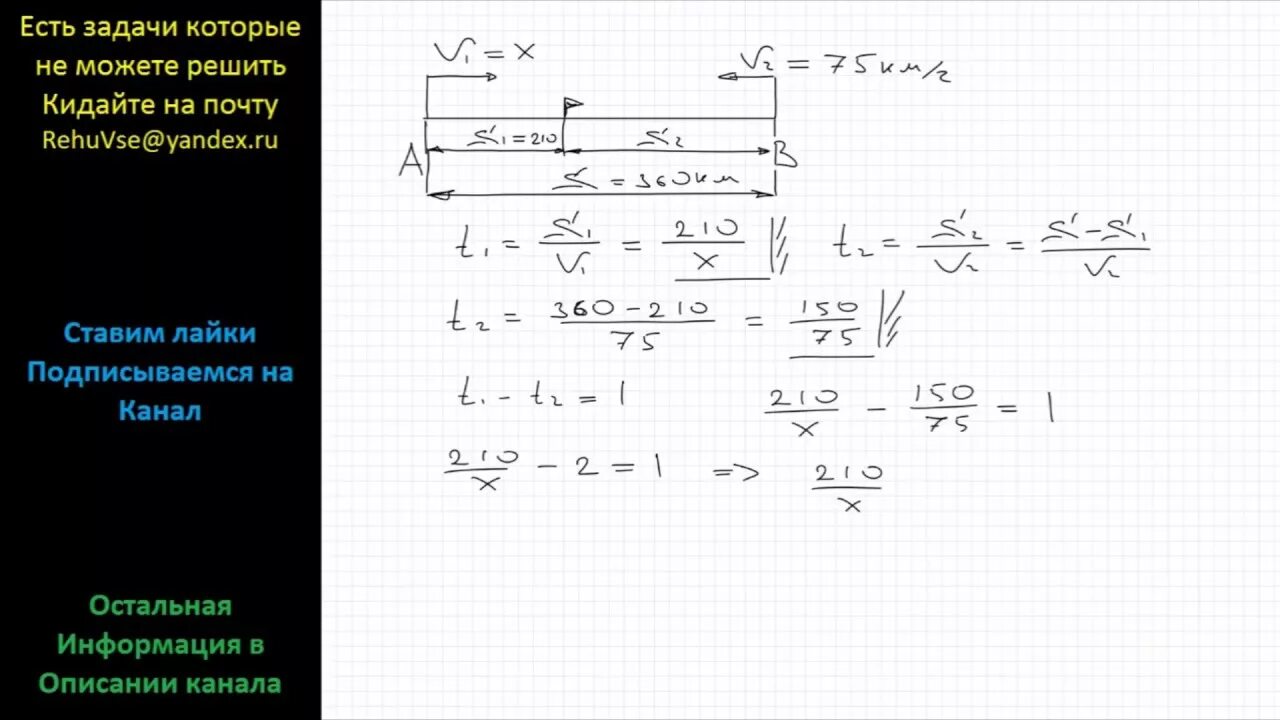 Есть задачи которые
не можете решить
Кидайте на почту
RehuVse@yandex.ru
Ставим лайки
Подписываемся на
Канал
Остальная
Информация в
Описании канала
V₁ = x
V₂ = 75км/ч
S₁=210 S₂
A B
S = 360км
t₁ = S₁/V₁ = 210/x t₂ = S₂/V₂ = S-S₁/V₂
t₂ = 360-210/75 = 150/75
t₁ - t₂ = 1 210/x - 150/75 = 1
210/x - 2 = 1 => 210/x